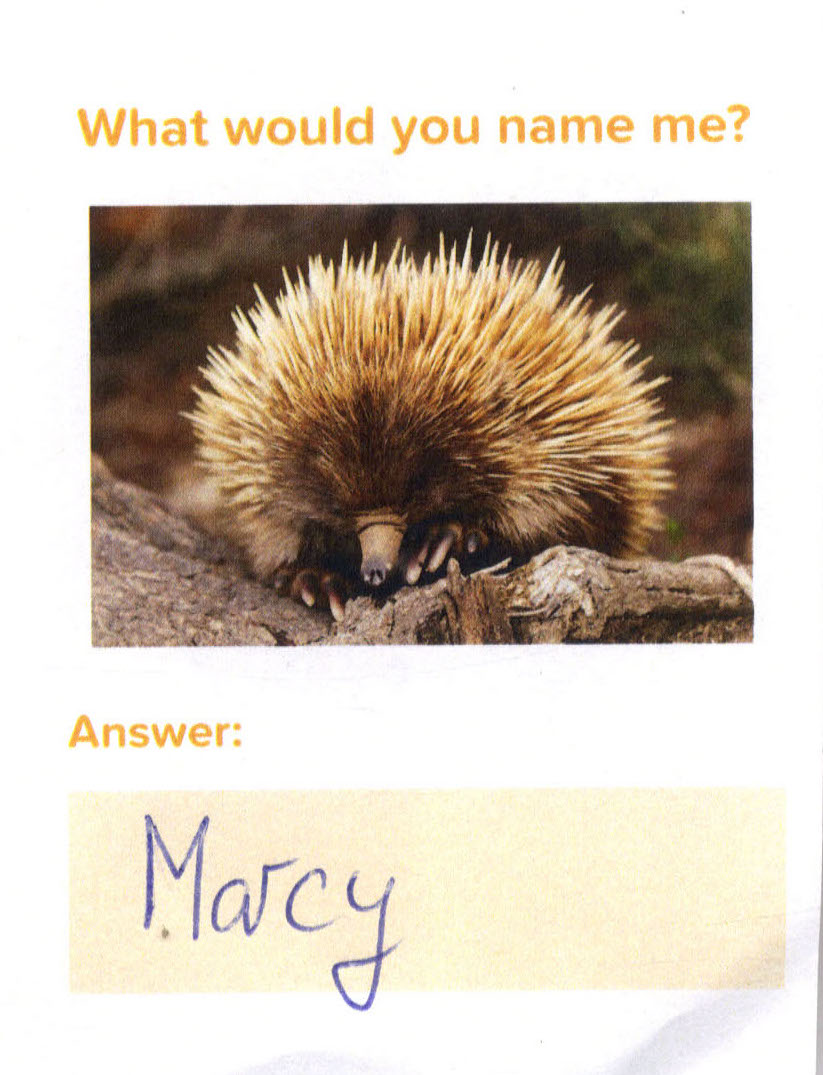 What would you name me?
Answer:
Marcy